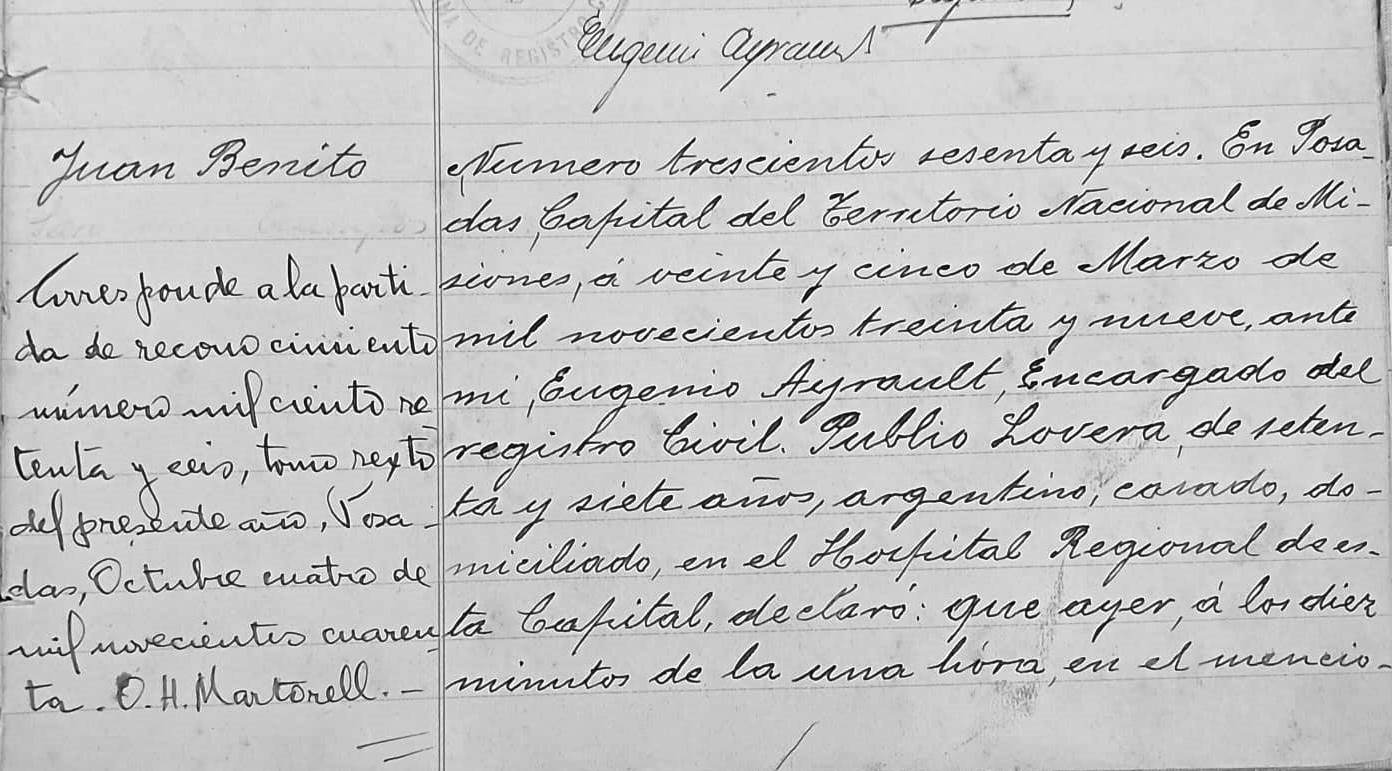 DE REGIST
Eugenio Ayrault
Juan Benito
Corresponde a la parti-
da de reconocimiento
número mil ciento se
tenta y seis, tomo sexto
del presente año, Posa-
das, Octubre cuatro de
mil novecientos cuaren-
ta. O. H. Martorell. -
Numero trescientos sesenta y seis. En Posa-
das, Capital del Territorio Nacional de Mi-
siones, á veinte y cinco de Marzo de
mil novecientos treinta y nueve, ante
mi, Eugenio Ayrault, Encargado del
registro Civil. Publio Lovera, de seten-
ta y siete años, argentino, casado, do-
miciliado, en el Hospital Regional de es-
ta Capital, declaró: que ayer, á los diez
minutos de la una hóra, en el mencio-